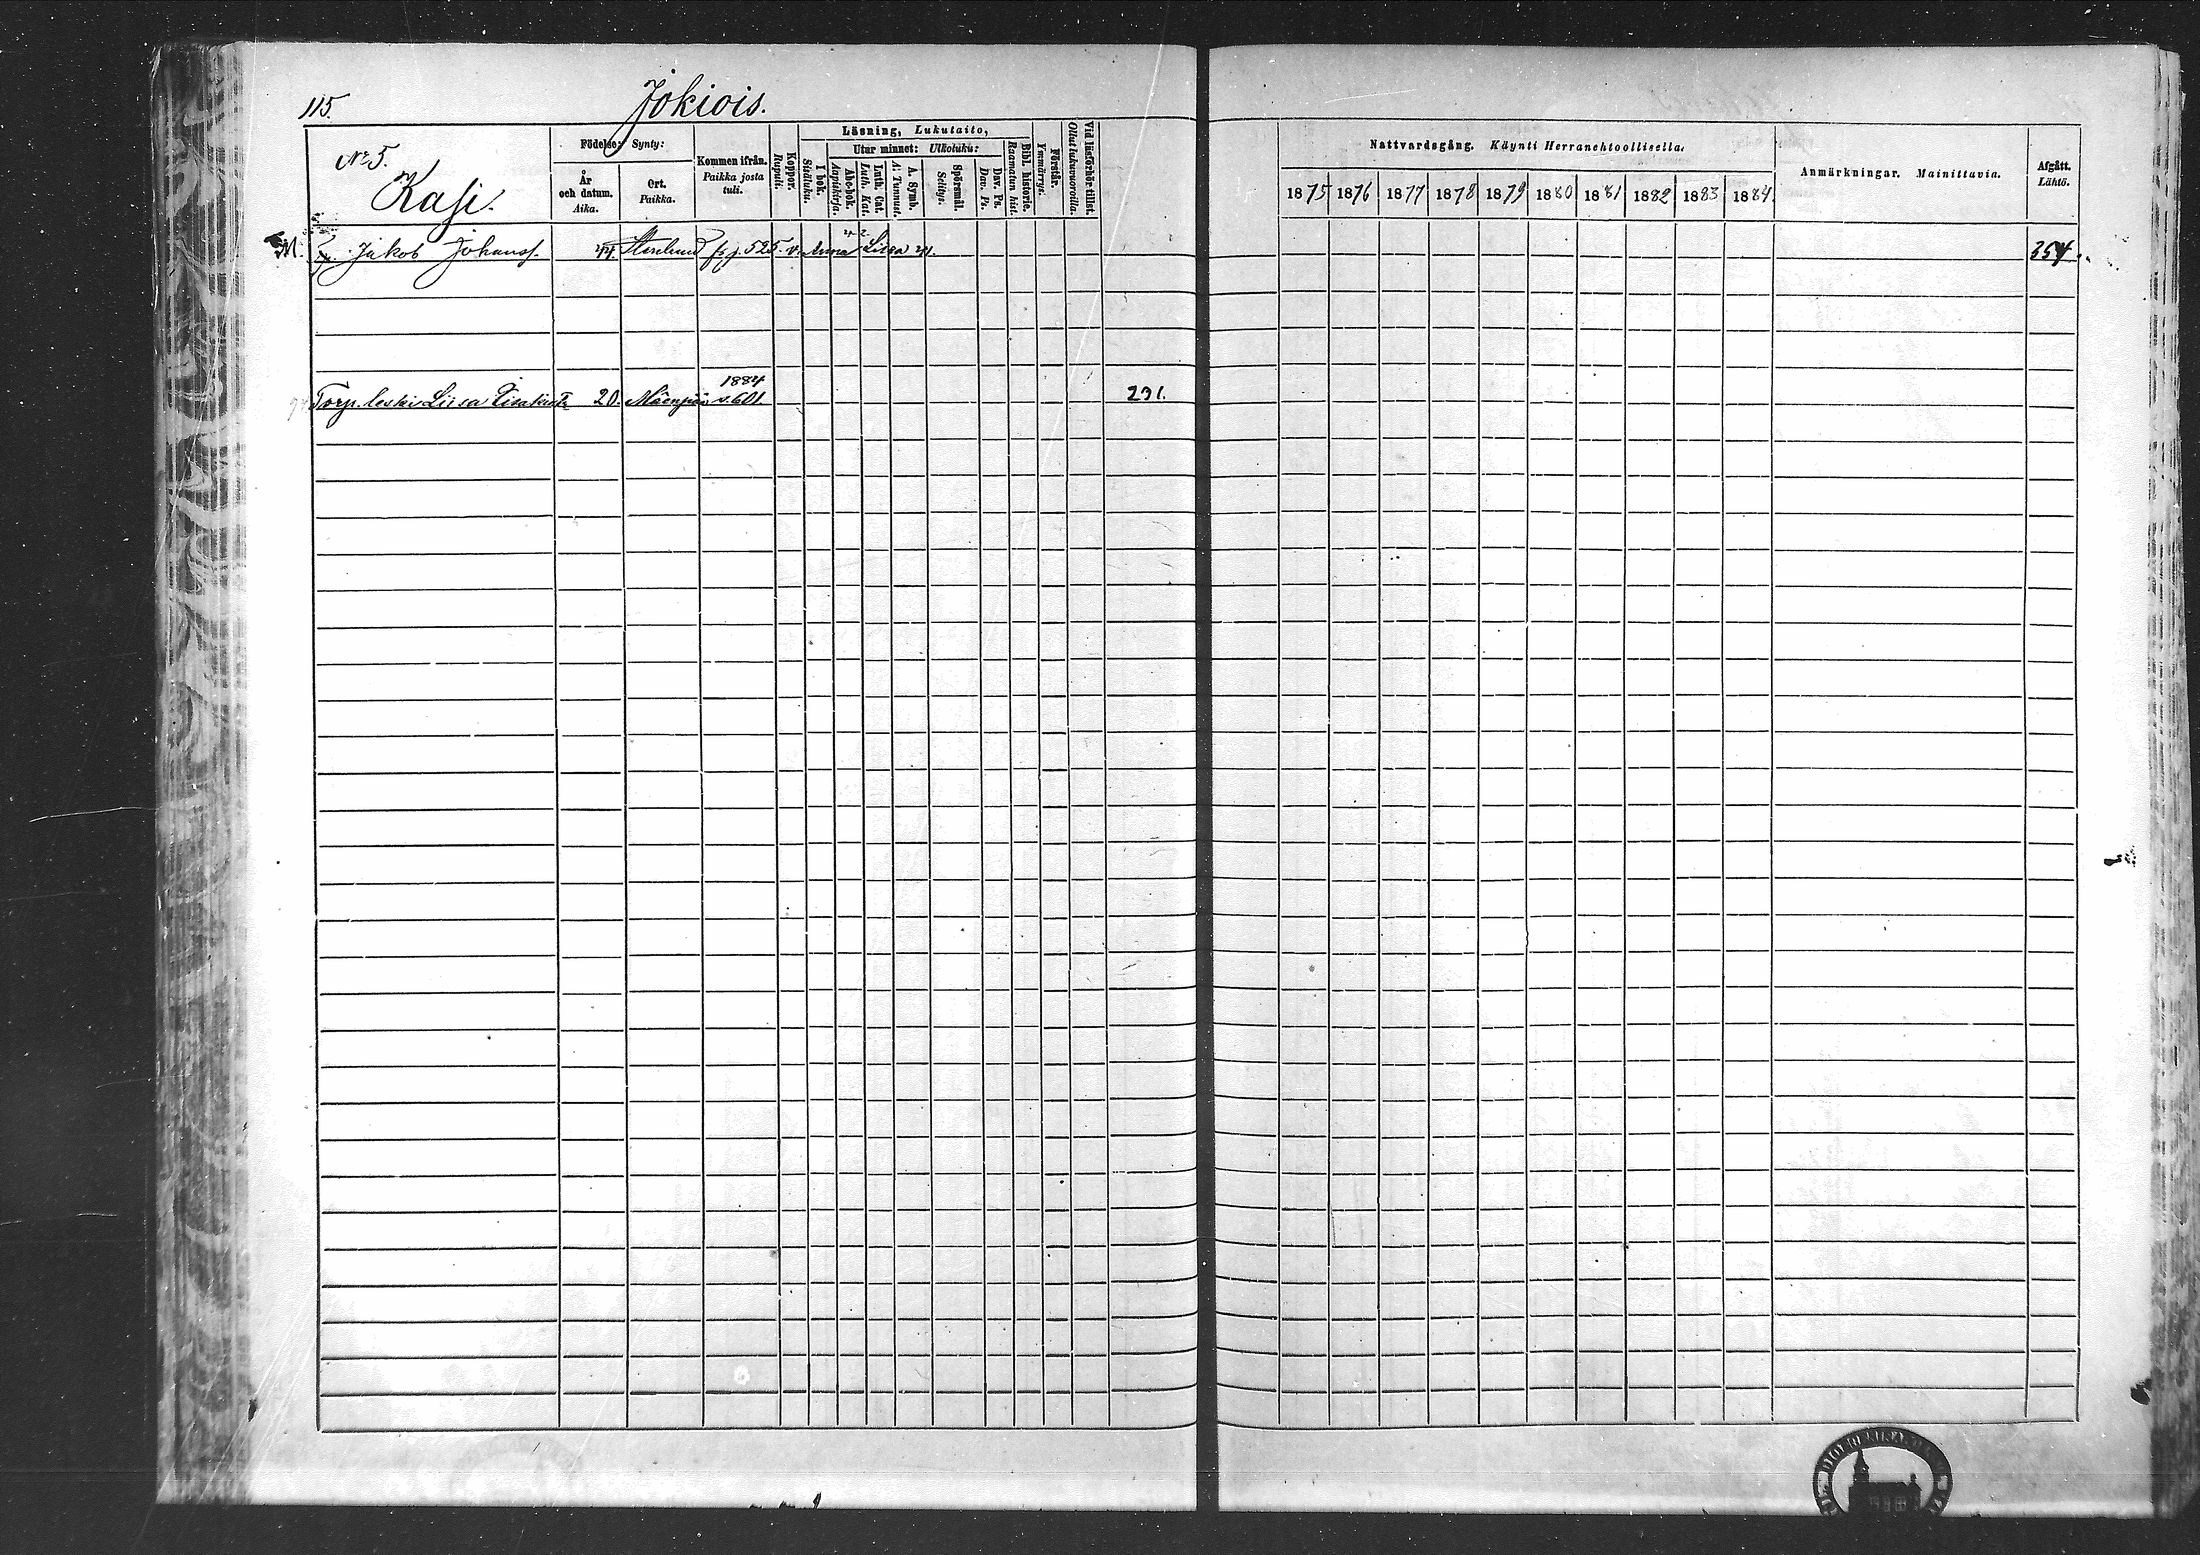 115.
Jokiois.
No 5.
Kasi.
Födelse: Synty:
År och datum. Aika.
Ort. Paikka.
Kommen ifrån. Paikka josta tuli.
Koppor. Rupuli.
Läsning, Lukutaito,
I bok. Sisäluku.
Utur minnet: Ulkoluku:
Abc-bok. Aapiskirja.
Luth. Cat. Luth. Kat.
A. Symb. A: Tunnust.
Spörsmål. Selitys.
Dav. Ps. Dav. Ps.
Bibl. historie. Raamatun hist.
Förstår. Ymmärrys.
Vid läsförhör tillst. Ollut lukuvuoroilla.
Nattvardsgång. Käynti Herranehtoollisella.
1875 1876 1877 1878 1879 1880 1881 1882 1883 1884.
Anmärkningar. Mainittavia.
Afgått. Lähtö.
M. Jakob Johanss. 44. p. 525. v. Anna Liisa 354.
1884
Torp. leski Liisa 20. Mäenpää v. 601. 291.